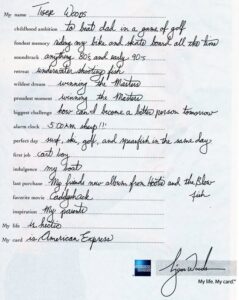 My name Tiger Woods
childhood ambition to beat dad in a game of golf
fondest memory riding my bike and skate board all the time
soundtrack anything 80's and early 90's
retreat underwater shooting fish
wildest dream winning the Masters
proudest moment winning the Masters
biggest challenge how can I become a better person tomorrow
alarm clock 5:00 AM sharp!!
perfect day surf, ski, golf, and spearfish in the same day
first job cart boy
indulgence my boat
last purchase My friends new album from Hootie and the Blow
fish
favorite movie Caddyshack
inspiration My parents
My life is hectic
My card is American Express
Tiger Woods
My life. My card.